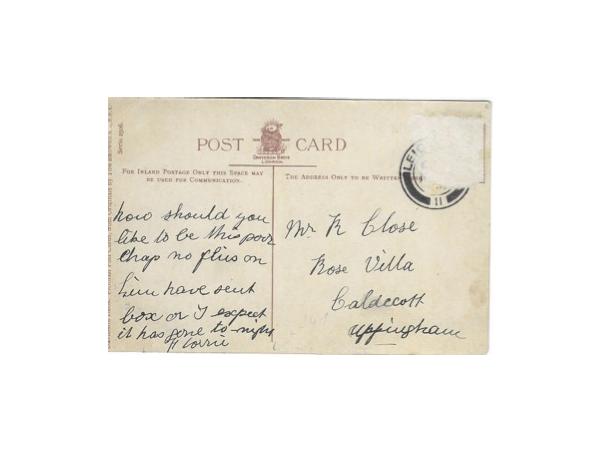 POST CARD
DAVIDSON BROS
LONDON.
Series 2506.
FOR INLAND POSTAGE ONLY THIS SPACE MAY
BE USED FOR COMMUNICATION.
THE ADDRESS ONLY TO BE WRITTEN
LEIC
11
how should you
like to be this poor
chap no flies on
him have sent
box or I expect
it has gone to-night
Florrie
Mr R Close
Rose Villa
Caldecott
Uppingham